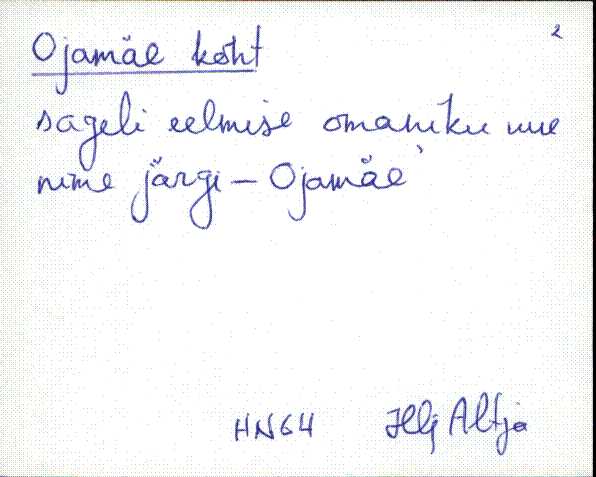 2
Ojamäe koht
sageli eelmise omaniku uue
nime järgi – Ojamäe'
HN64 Hlj Altja